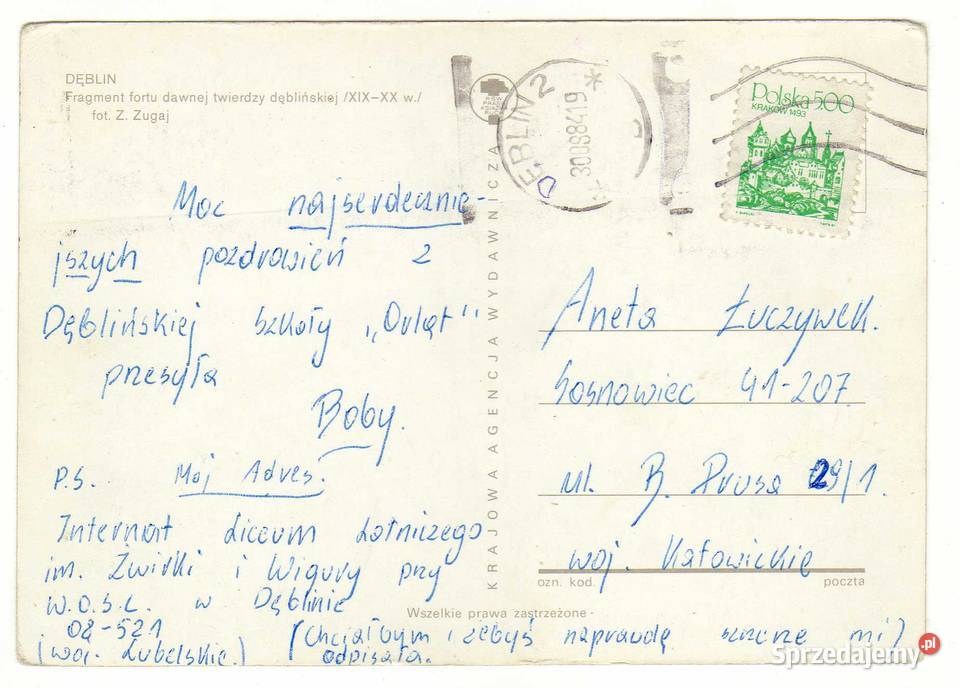 DĘBLIN
Fragment fortu dawnej twierdzy dęblińskiej /XIX–XX w./
fot. Z. Zugaj
DĘBLIN 2
30088419
Polska 500
KRAKÓW 1493
Moc najserdecznie-
jszych pozdrowień z
Dęblińskiej szkoły „Orląt"
przesyła
Boby.
P.S. Mój Adres:
Internat Liceum Lotniczego
im. Żwirki i Wigury przy
W.O.S.L. w Dęblinie
08-521
(woj. Lubelskie.)
(Chciałbym żebyś naprawdę szczerze mi)
odpisała.
KRAJOWA AGENCJA WYDAWNICZA
Aneta Łuczywek.
Sosnowiec 41-207.
ul. B. Prusa 29/1.
woj. Katowickie
ozn. kod. poczta
Wszelkie prawa zastrzeżone
Sprzedajemy.pl